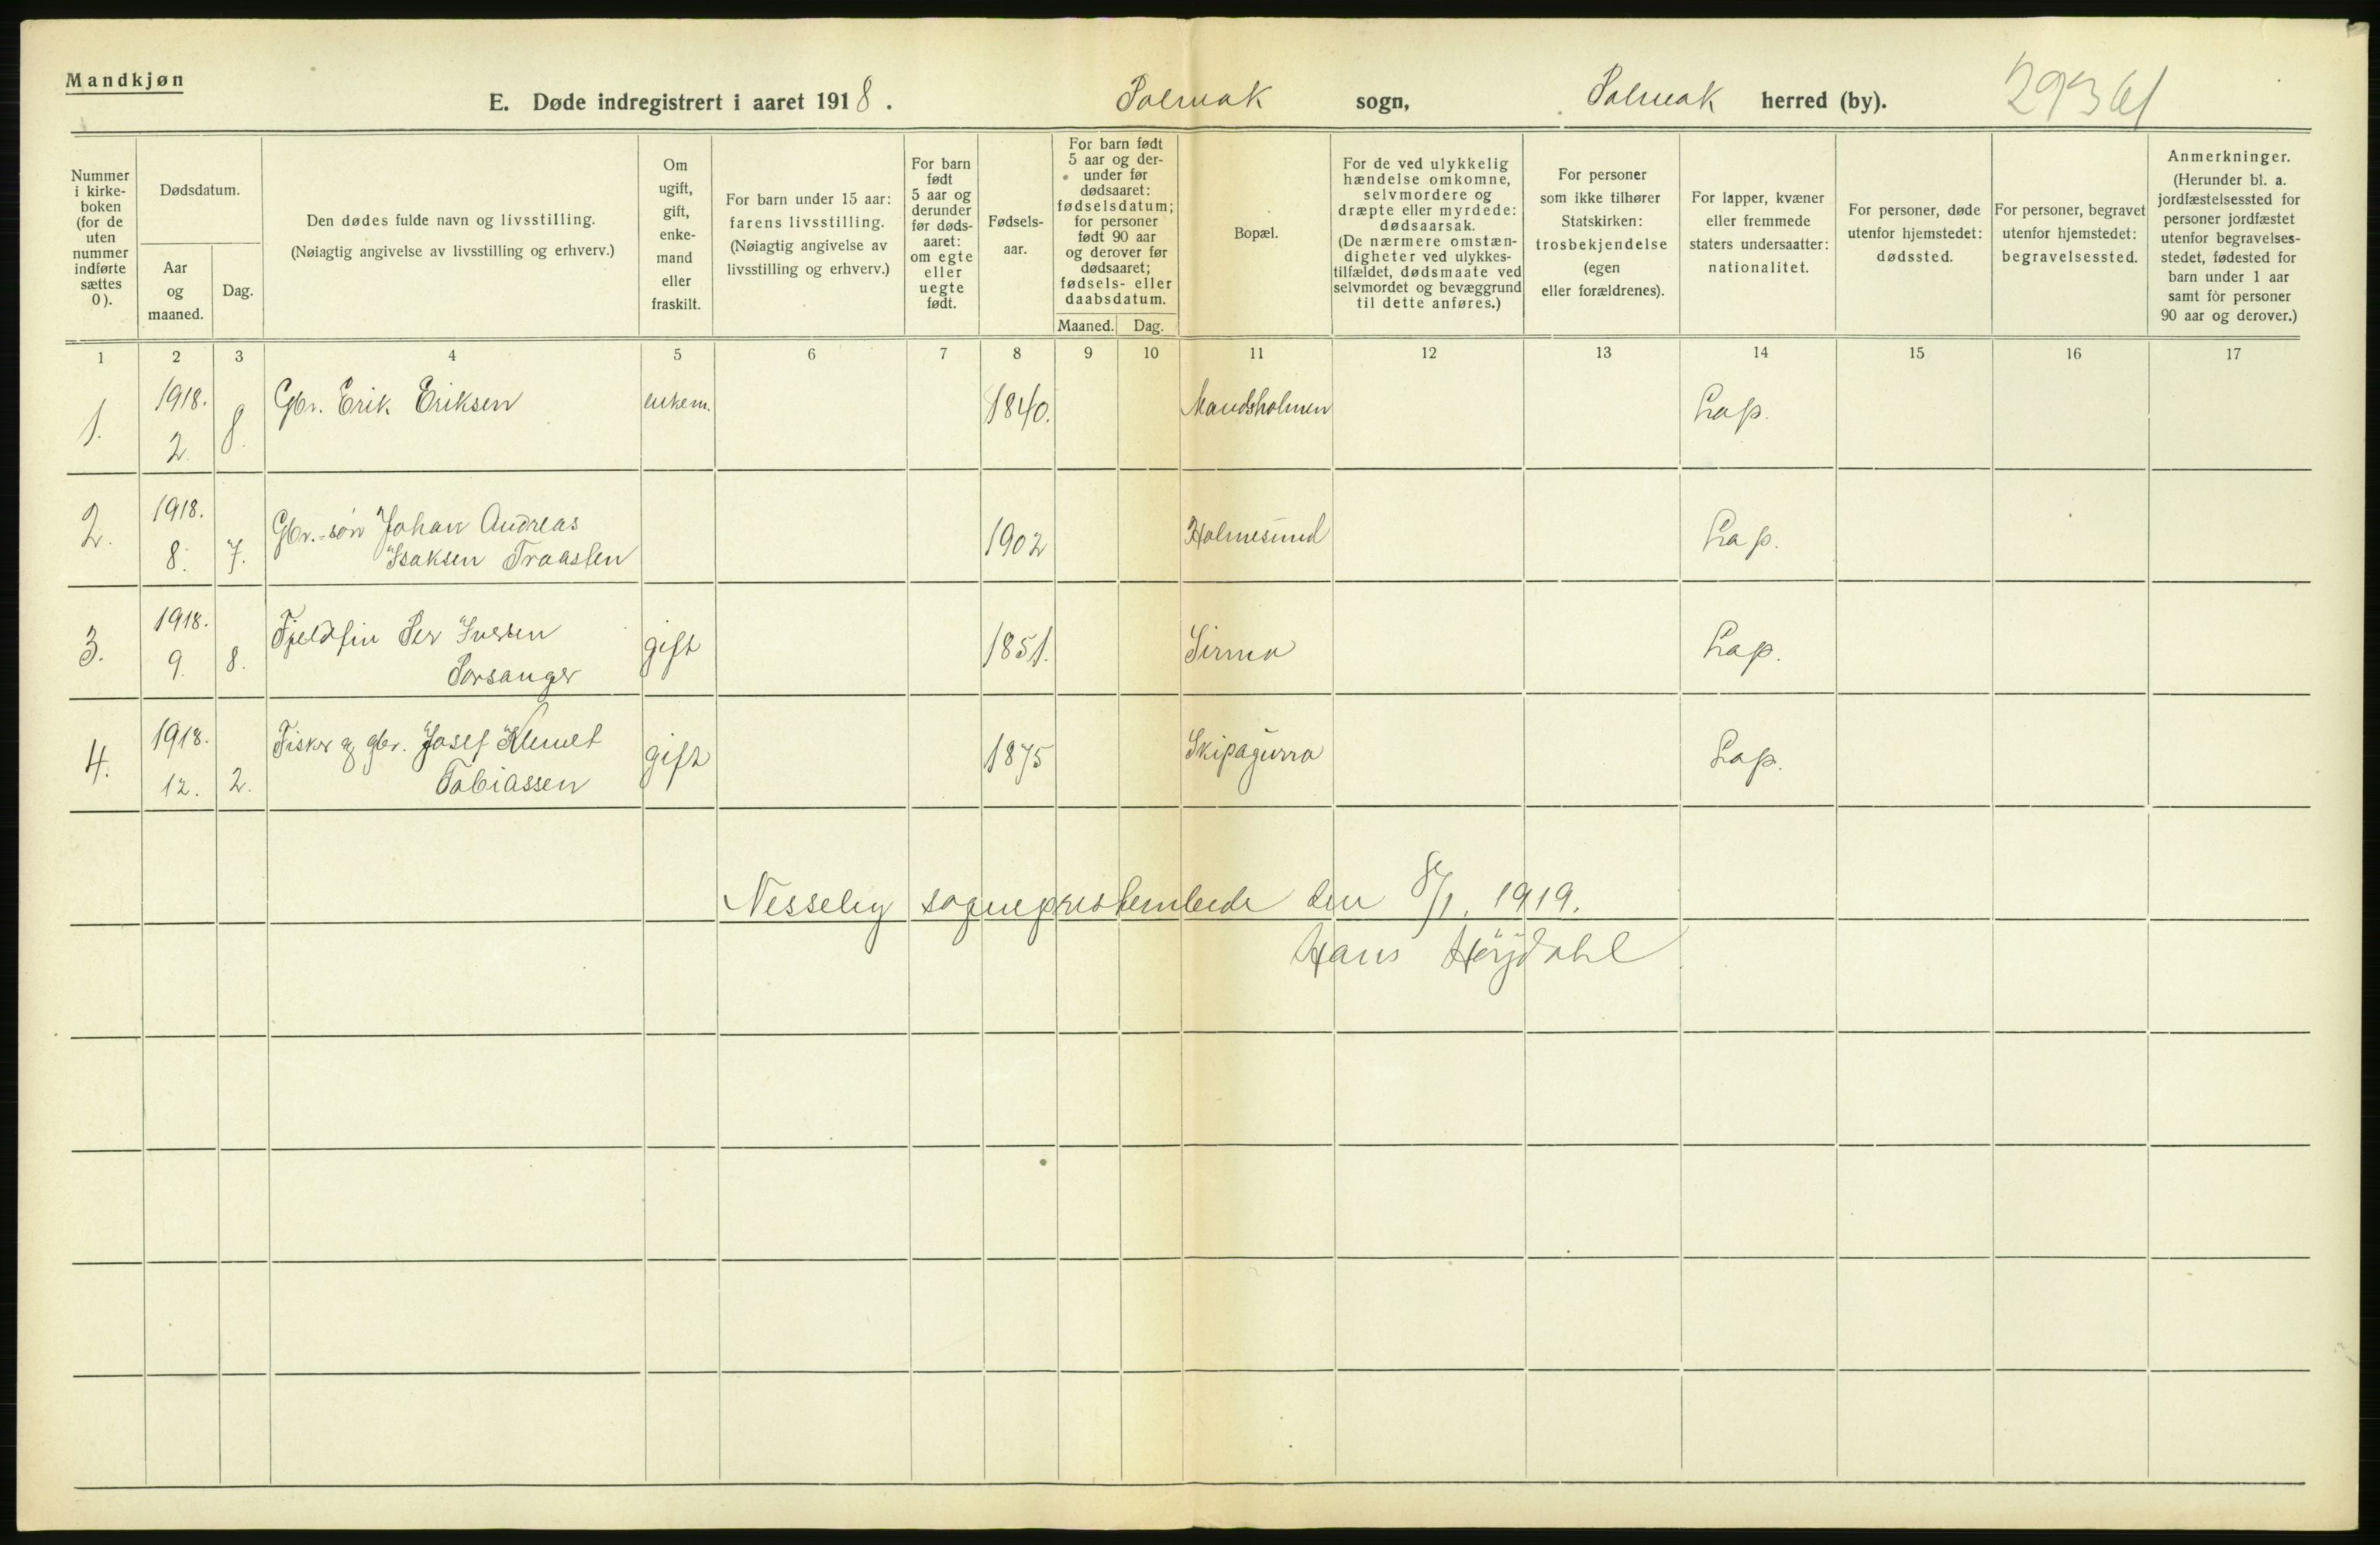 Mandkjøn
E. Døde indregistrert i aaret 1918. Polmak sogn, Polmak herred (by). 29361
Nummer i kirke-boken (for de uten nummer indførte sættes 0).
Dødsdatum.
Aar og maaned.
Dag.
Den dødes fulde navn og livsstilling.
(Nøiagtig angivelse av livsstilling og erhverv.)
Om ugift, gift, enke-mand eller fraskilt.
For barn under 15 aar: farens livsstilling. (Nøiagtig angivelse av livsstilling og erhverv.)
For barn født 5 aar og derunder før døds-aaret: om egte eller uegte født.
Fødsels-aar.
For barn født 5 aar og der-under før dødsaaret: fødselsdatum; for personer født 90 aar og derover før dødsaaret; fødsels- eller daabsdatum.
Maaned. Dag.
Bopæl.
For de ved ulykkelig hændelse omkomne, selvmordere og dræpte eller myrdede: dødsaarsak. (De nærmere omstæn-digheter ved ulykkes-tilfældet, dødsmaate ved selvmordet og bevæggrund til dette anføres.)
For personer som ikke tilhører Statskirken: trosbekjendelse (egen eller forældrenes).
For lapper, kvæner eller fremmede staters undersaatter: nationalitet.
For personer, døde utenfor hjemstedet: dødssted.
For personer, begravet utenfor hjemstedet: begravelsessted.
Anmerkninger. (Herunder bl. a. jordfæstelsessted for personer jordfæstet utenfor begravelses-stedet, fødested for barn under 1 aar samt for personer 90 aar og derover.)
1 2 3 4 5 6 7 8 9 10 11 12 13 14 15 16 17
1. 1918. 2. 8. Gbr. Erik Eriksen enkem. 1840. Mandsholmen Lap.
2. 1918. 8. 7. Gbr.-søn Johan Andreas 1902 Holmesund Lap.
Isaksen Traasten
3. 1918. 9. 8. Fjeldfin Per Iversen gift 1851. Sirma Lap.
Porsanger
4. 1918. 12. 2. Fisker og gbr. Josef Klemet gift 1875 Skipagurra Lap.
Tobiassen
Nesseby sogneprestembede den 8/1. 1919.
Hans Høydahl